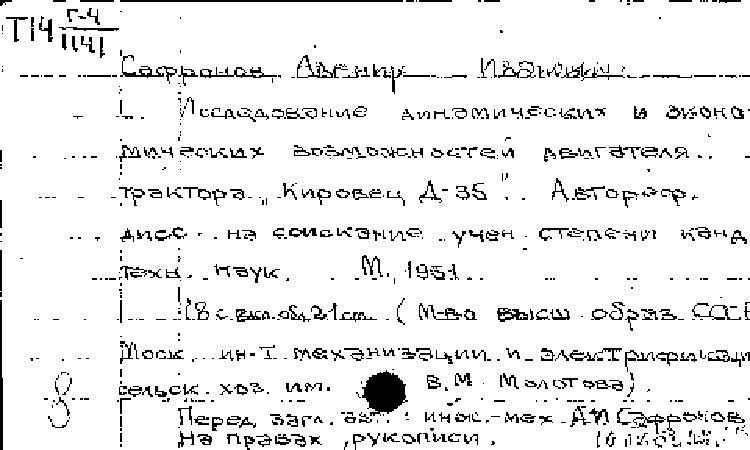 Т14 Г-4
1141
Сафронов, Авенир Иванович.
Исследование динамических и эконо-
мических возможностей двигателя
трактора "Кировец Д-35". Автореф.
дисс. на соискание учен. степени канд.
техн. наук. М., 1951.
18 с. вкл. обл. 21 см. (М-во высш. образ. СССР
Моск. ин-т механизации и электрификации
сельск. хоз. им. В.М. Молотова).
8
Перед загл. авт.: инж.-мех. А.И. Сафронов
На правах рукописи.